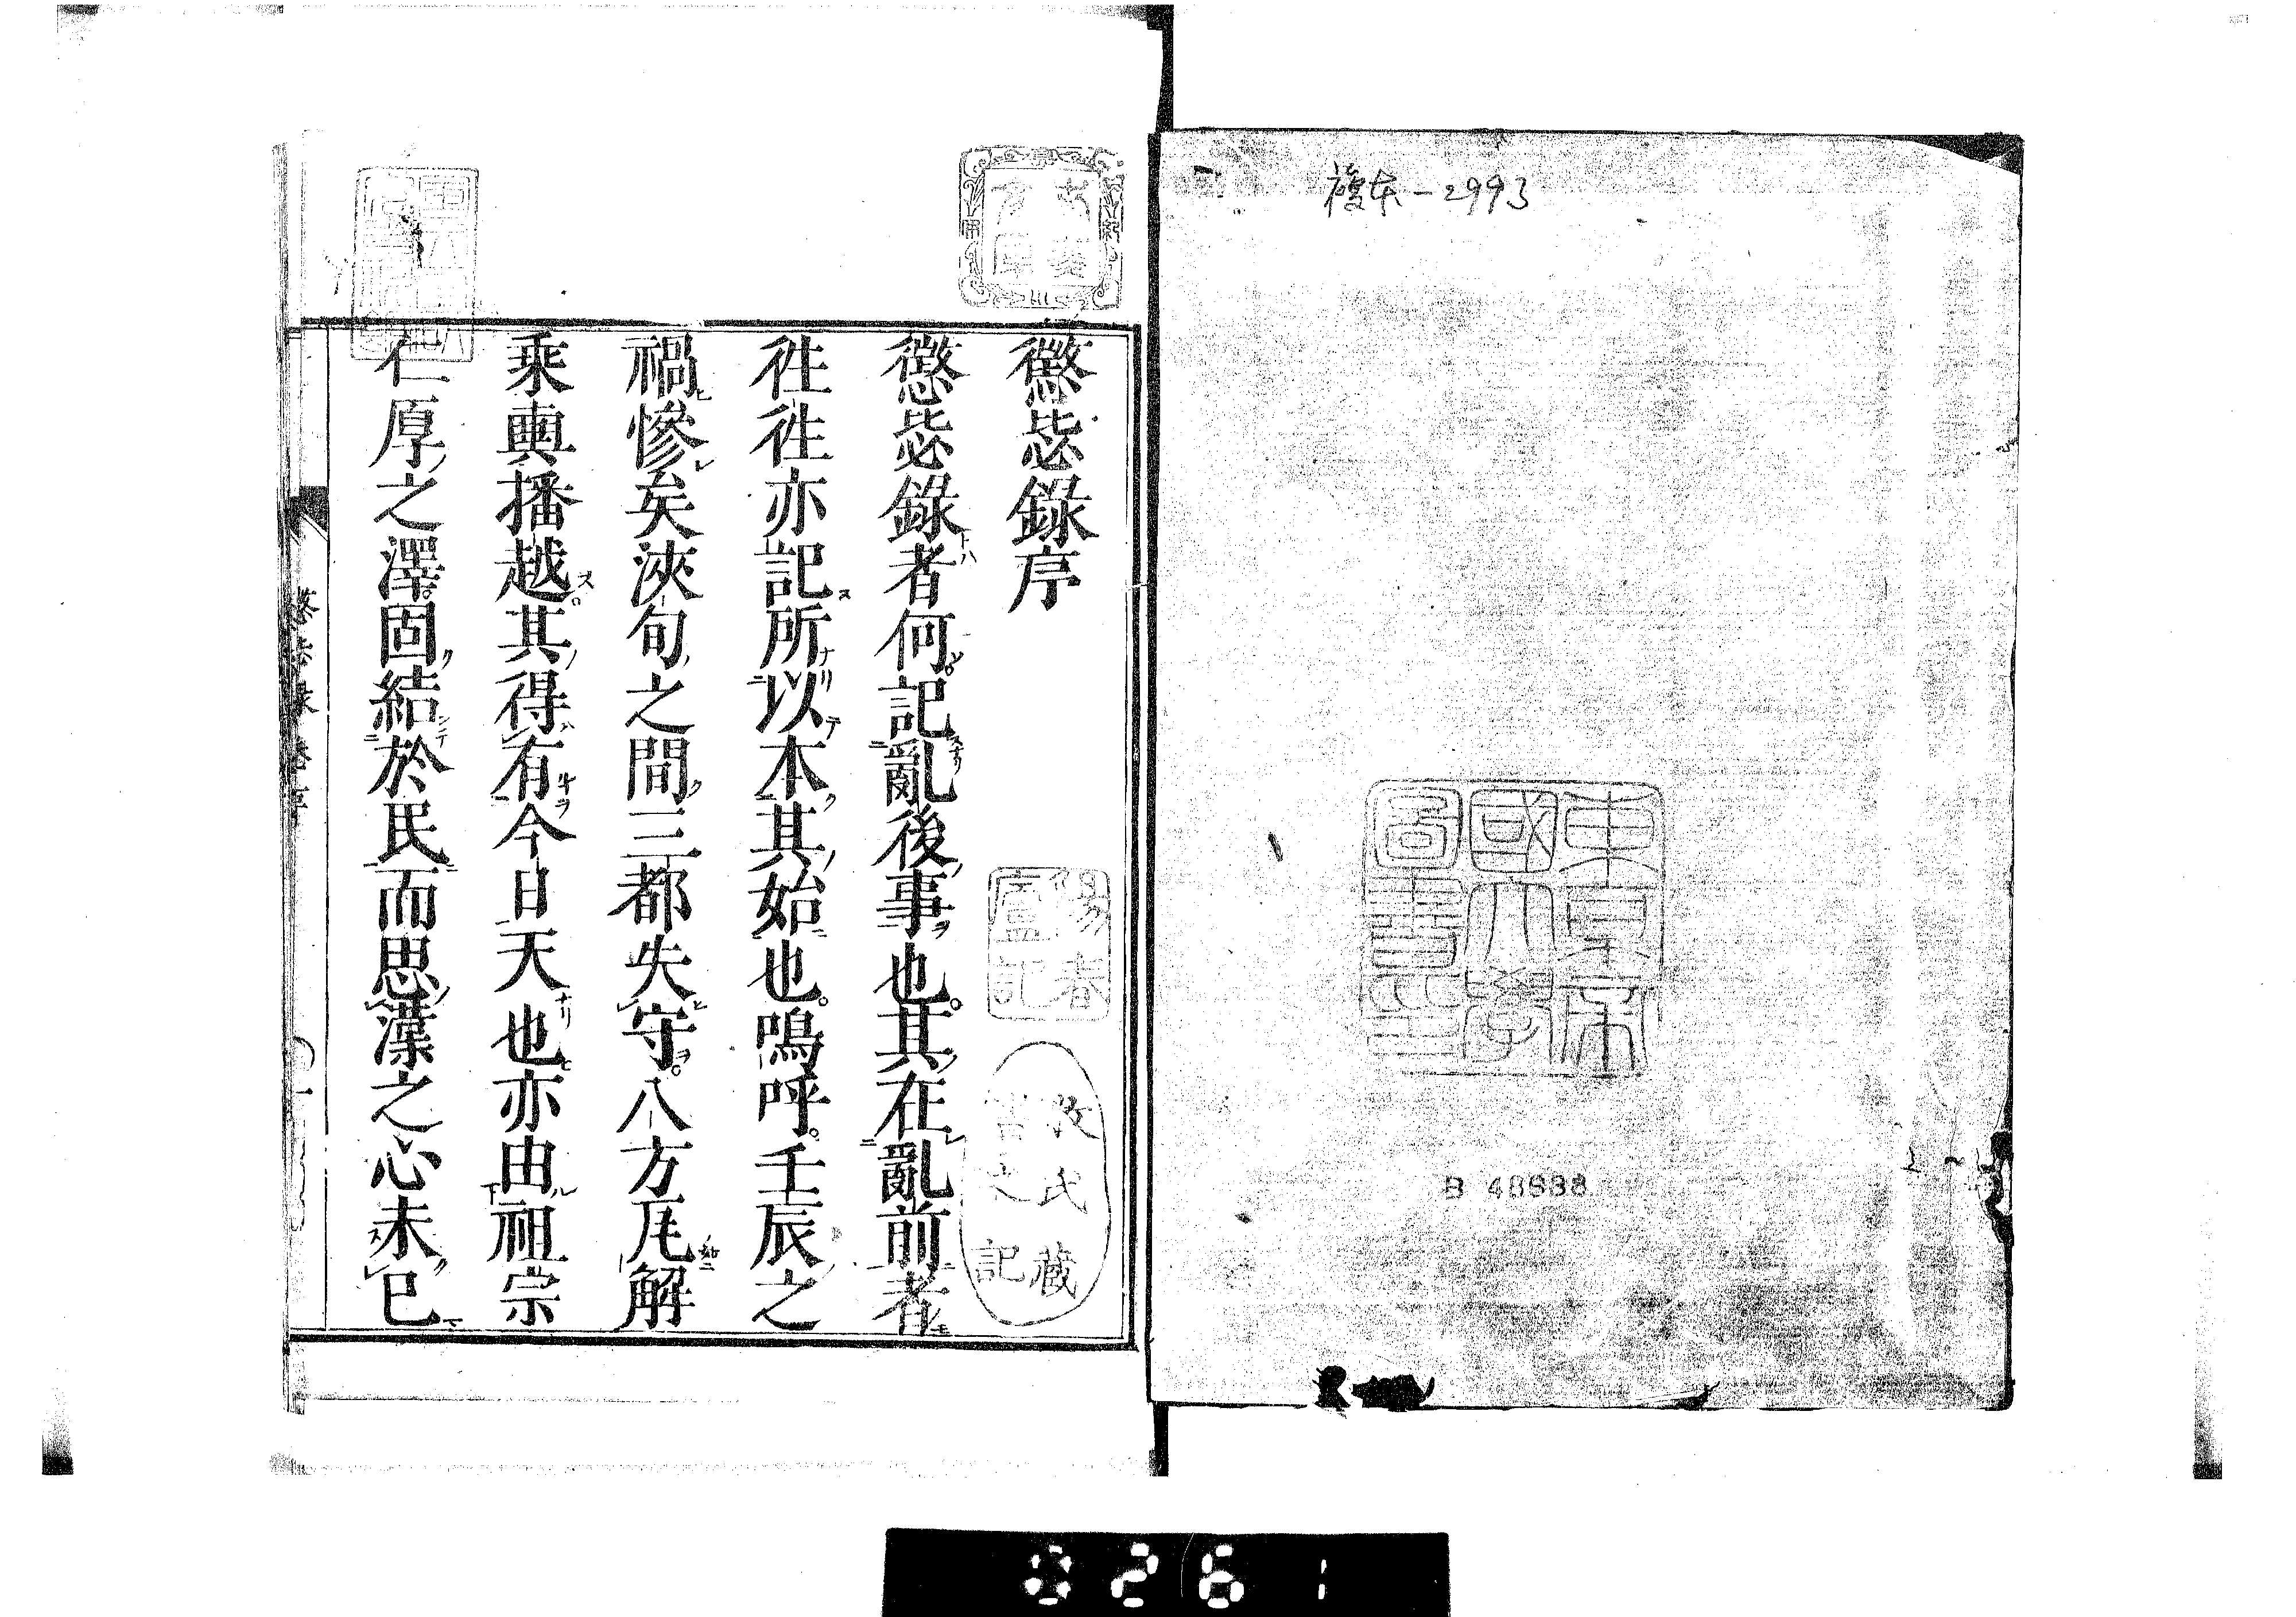 複本-2993
東京帝
國大學
圖書印
B 48688
懲毖錄序
陽春
廬記
懲毖錄者何記亂後事也其在亂前者
徃徃亦記所以本其始也嗚呼壬辰之
禍慘矣浹旬之間三都失守八方瓦解
乘輿播越其得有今日天也亦由祖宗
仁厚之澤固結於民而思漢之心未已
0261